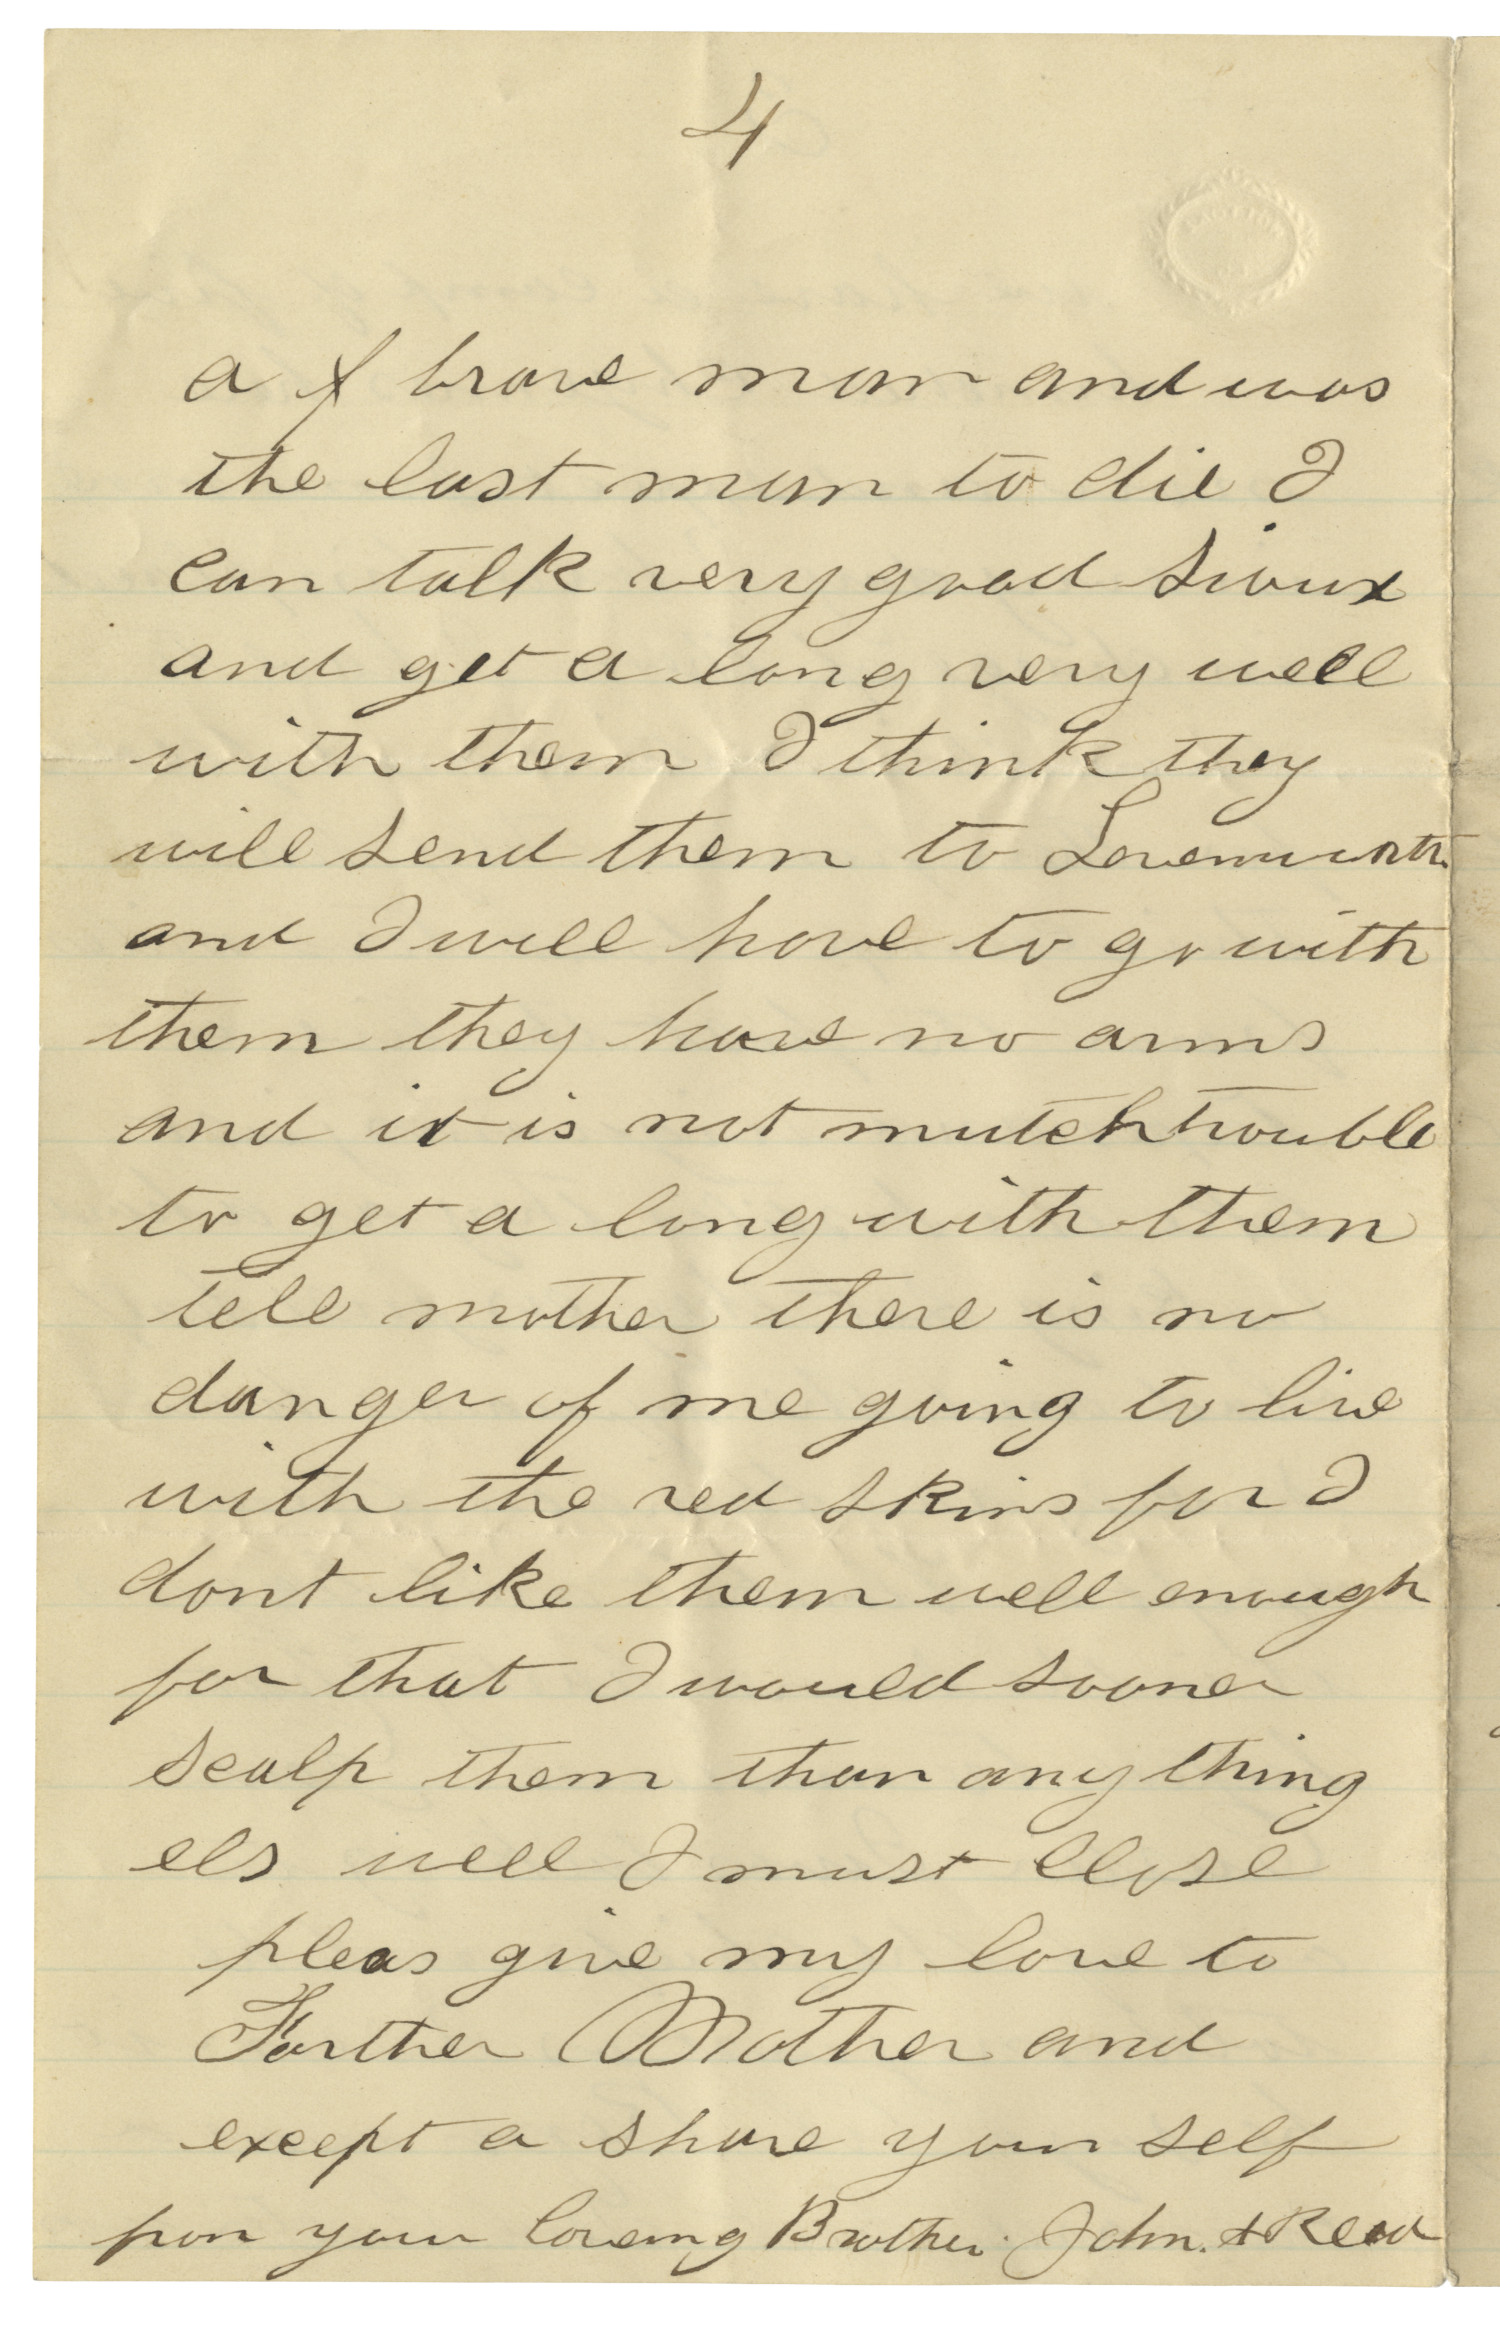 4
a brave man and was
the last man to die I
can talk very good Sioux
and get a long very well
with them I think they
will send them to Levenworth
and I will have to go with
them they have no arms
and it is not mutch trouble
to get a long with them
tell mother there is no
danger of me going to live
with the red skins for I
dont like them well enough
for that I would sooner
scalp them than any thing
els well I must close
pleas give my love to
Farther Mother and
except a share your self
from your loveing Brother John. A Read